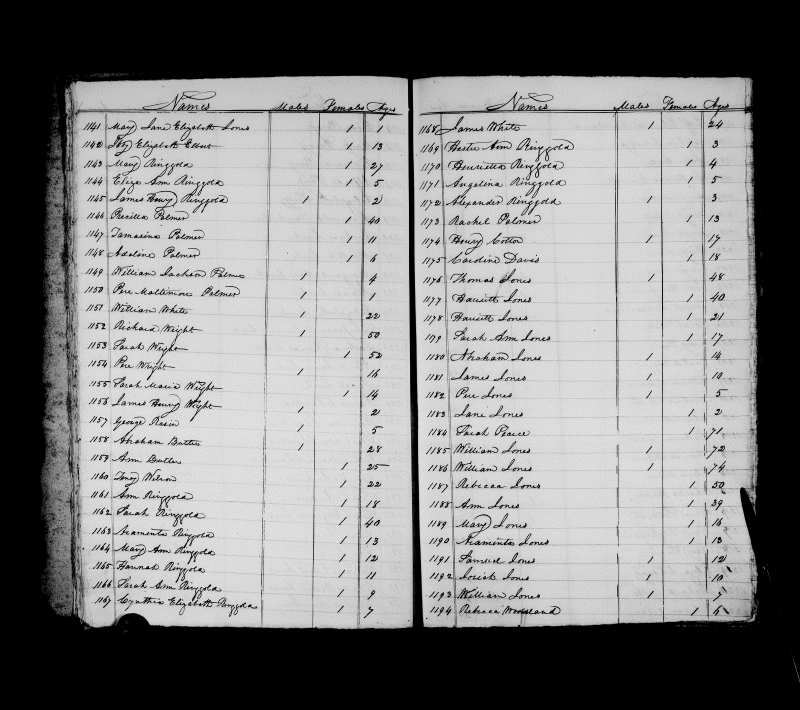 Names Males Females Ages
1141 Mary Jane Elizabeth Jones 1 1
1142 Elizabeth Elbut 1 13
1143 Mary Ringgold 1 27
1144 Eliza Ann Ringgold 1 5
1145 James Henry Ringgold 1 2
1146 Precilla Palmer 1 40
1147 Tamasina Palmer 1 11
1148 Adaline Palmer 1 6
1149 William Jackson Palmer 1 4
1150 Pere Maltimore Palmer 1 1
1151 William White 1 22
1152 Richard Wright 1 50
1153 Sarah Wright 1 52
1154 Pere Wright 1 16
1155 Sarah Maria Wright 1 14
1156 James Henry Wright 1 2
1157 George Rasin 1 5
1158 Abraham Butler 1 28
1159 Ann Butler 1 25
1160 Wilson 1 22
1161 Ann Ringgold 1 18
1162 Sarah Ringgold 1 40
1163 Araminta Ringgold 1 13
1164 Mary Ann Ringgold 1 12
1165 Hannah Ringgold 1 11
1166 Sarah Ann Ringgold 1 9
1167 Cynthia Elizabeth Ringgold 1 7
Names Males Females Ages
1168 James White 1 24
1169 Hester Ann Ringgold 1 3
1170 Henrietta Ringgold 1 4
1171 Angelina Ringgold 1 5
1172 Alexander Ringgold 1 3
1173 Rachel Palmer 1 13
1174 Henry Cotter 1 17
1175 Caroline Davis 1 18
1176 Thomas Jones 1 48
1177 Harriett Jones 1 40
1178 Harriett Jones 1 21
1179 Sarah Ann Jones 1 17
1180 Abraham Jones 1 14
1181 James Jones 1 10
1182 Pere Jones 1 5
1183 Jane Jones 1 2
1184 Sarah Pearce 1 71
1185 William Jones 1 72
1186 William Jones 1 74
1187 Rebecca Jones 1 50
1188 Ann Jones 1 39
1189 Mary Jones 1 16
1190 Araminta Jones 1 13
1191 Samuel Jones 1 12
1192 Josiah Jones 1 10
1193 William Jones 1 7
1194 Rebecca Woodland 1 6